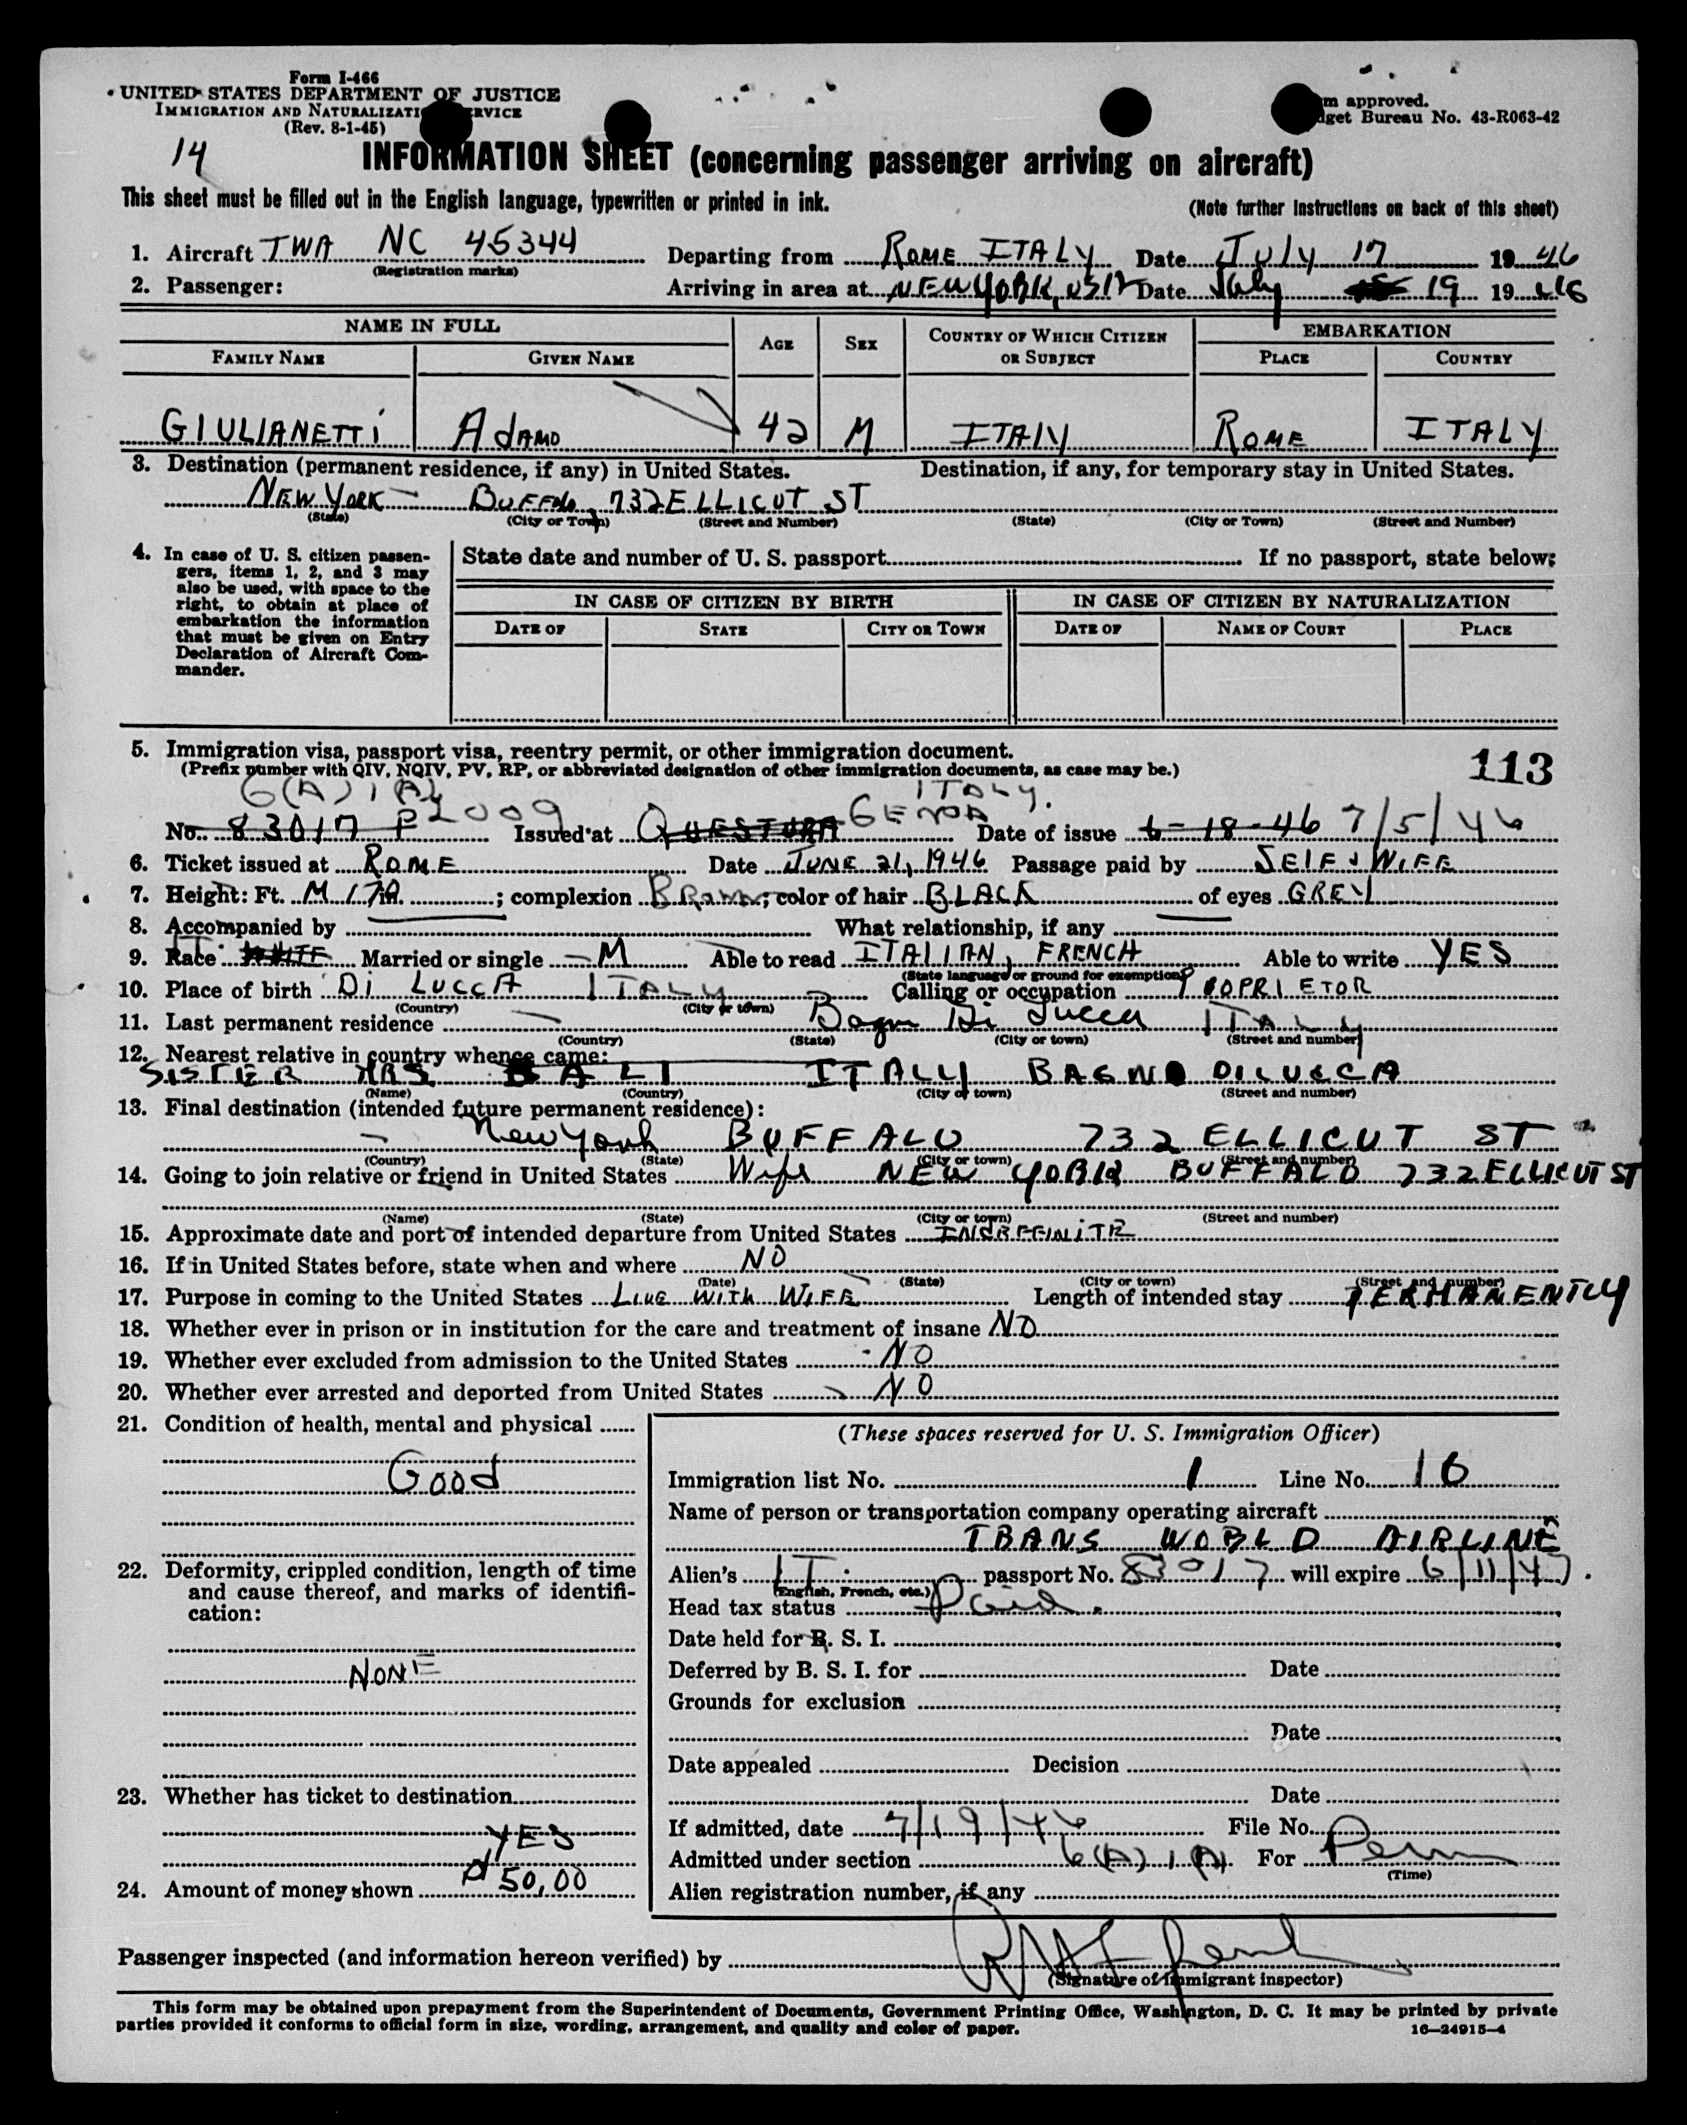 Form I-466
UNITED STATES DEPARTMENT OF JUSTICE
IMMIGRATION AND NATURALIZATI RVICE
(Rev. 8-1-45)
m approved.
dget Bureau No. 43-R063-42
14
INFORMATION SHEET (concerning passenger arriving on aircraft)
This sheet must be filled out in the English language, typewritten or printed in ink.
(Note further instructions on back of this sheet)
1. Aircraft TWA NC 45344 Departing from ROME ITALY Date July 17 1946
(Registration marks)
2. Passenger: Arriving in area at NEW YORK, USA Date July 19 1946
NAME IN FULL AGE SEX COUNTRY OF WHICH CITIZEN OR SUBJECT EMBARKATION
FAMILY NAME GIVEN NAME PLACE COUNTRY
GIULIANETTI ADAMO 42 M ITALY ROME ITALY
3. Destination (permanent residence, if any) in United States. Destination, if any, for temporary stay in United States.
NEW YORK - BUFFALO, 732 ELLICUT ST
(State) (City or Town) (Street and Number) (State) (City or Town) (Street and Number)
4. In case of U. S. citizen passengers, items 1, 2, and 3 may also be used, with space to the right, to obtain at place of embarkation the information that must be given on Entry Declaration of Aircraft Commander.
State date and number of U. S. passport If no passport, state below:
IN CASE OF CITIZEN BY BIRTH IN CASE OF CITIZEN BY NATURALIZATION
DATE OF STATE CITY OR TOWN DATE OF NAME OF COURT PLACE
5. Immigration visa, passport visa, reentry permit, or other immigration document.
(Prefix number with QIV, NQIV, PV, RP, or abbreviated designation of other immigration documents, as case may be.)
113
6(A)1(A) ITALY.
No. 83017 P 2009 Issued at QUESTURA GENOA Date of issue 6-18-46 7/5/46
6. Ticket issued at ROME Date JUNE 21, 1946 Passage paid by SELF WIFE
7. Height: Ft. M 1,70 in. ; complexion BROWN; color of hair BLACK of eyes GREY
8. Accompanied by What relationship, if any
9. Race IT. WHITE Married or single M Able to read ITALIAN, FRENCH Able to write YES
(State language or ground for exemption)
10. Place of birth DI LUCCA ITALY Calling or occupation PROPRIETOR
(Country) (City or town)
11. Last permanent residence Bagni Di Lucca ITALY
(Country) (State) (City or town) (Street and number)
12. Nearest relative in country whence came:
SISTER MRS. BALI ITALY BAGNO DILUCCA
(Name) (Country) (City or town) (Street and number)
13. Final destination (intended future permanent residence):
New York BUFFALO 732 ELLICUT ST
(Country) (State) (City or town) (Street and number)
14. Going to join relative or friend in United States Wife NEW YORK BUFFALO 732 ELLICUT ST
(Name) (State) (City or town) (Street and number)
15. Approximate date and port of intended departure from United States
16. If in United States before, state when and where NO
(Date) (State) (City or town) (Street and number)
17. Purpose in coming to the United States LIVE WITH WIFE Length of intended stay PERMANENTLY
18. Whether ever in prison or in institution for the care and treatment of insane NO
19. Whether ever excluded from admission to the United States NO
20. Whether ever arrested and deported from United States NO
21. Condition of health, mental and physical
Good
22. Deformity, crippled condition, length of time
and cause thereof, and marks of identifi-
cation:
NONE
23. Whether has ticket to destination
YES
24. Amount of money shown $ 50,00
(These spaces reserved for U. S. Immigration Officer)
Immigration list No. 1 Line No. 16
Name of person or transportation company operating aircraft
TRANS WORLD AIRLINE
Alien's IT. passport No. 83017 will expire 6/11/47.
(English, French, etc.)
Head tax status Paid.
Date held for B. S. I.
Deferred by B. S. I. for Date
Grounds for exclusion
Date
Date appealed Decision
Date
If admitted, date 7/19/46 File No.
Admitted under section 6(A) 1(A) For Perm
(Time)
Alien registration number, if any
Passenger inspected (and information hereon verified) by
(Signature of immigrant inspector)
This form may be obtained upon prepayment from the Superintendent of Documents, Government Printing Office, Washington, D. C. It may be printed by private
parties provided it conforms to official form in size, wording, arrangement, and quality and color of paper.
16—24915-4